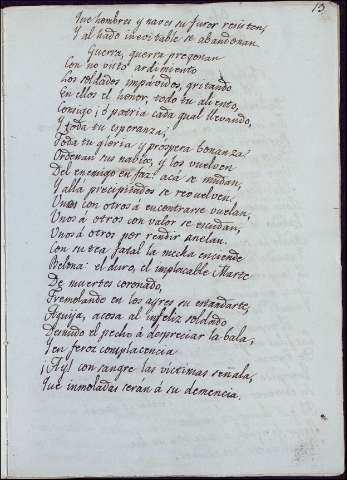 13
Que hombres y naves su furor resisten,
Y al hado inevitable se abandonan.
Guerra, guerra pregonan
Con no visto ardimiento
Los soldados impávidos, gritando
En ellos el honor, todo tu aliento,
Consigo ¡ó patria cada qual llevando,
Y toda tu esperanza,
Toda tu gloria y prospera bonanza.
Ordenan sus navios, y los vuelven
Del enemigo en faz: acá se mudan,
Y allá precipitados se revuelven.
Unos con otros á encontrarse vuelan,
Unos á otros con valor se escudan,
Unos á otros por rendir anelan.
Con su tea fatal la mecha enciende
Belona: el duro, el implacable Marte
De muertes coronado,
Tremolando en los ayres su estandarte,
Aguija, acosa al infeliz soldado
Denudo el pecho á despreciar la bala;
Y en feroz complacencia
¡Ay! con sangre las victimas señala,
Que inmoladas serán á su demencia.